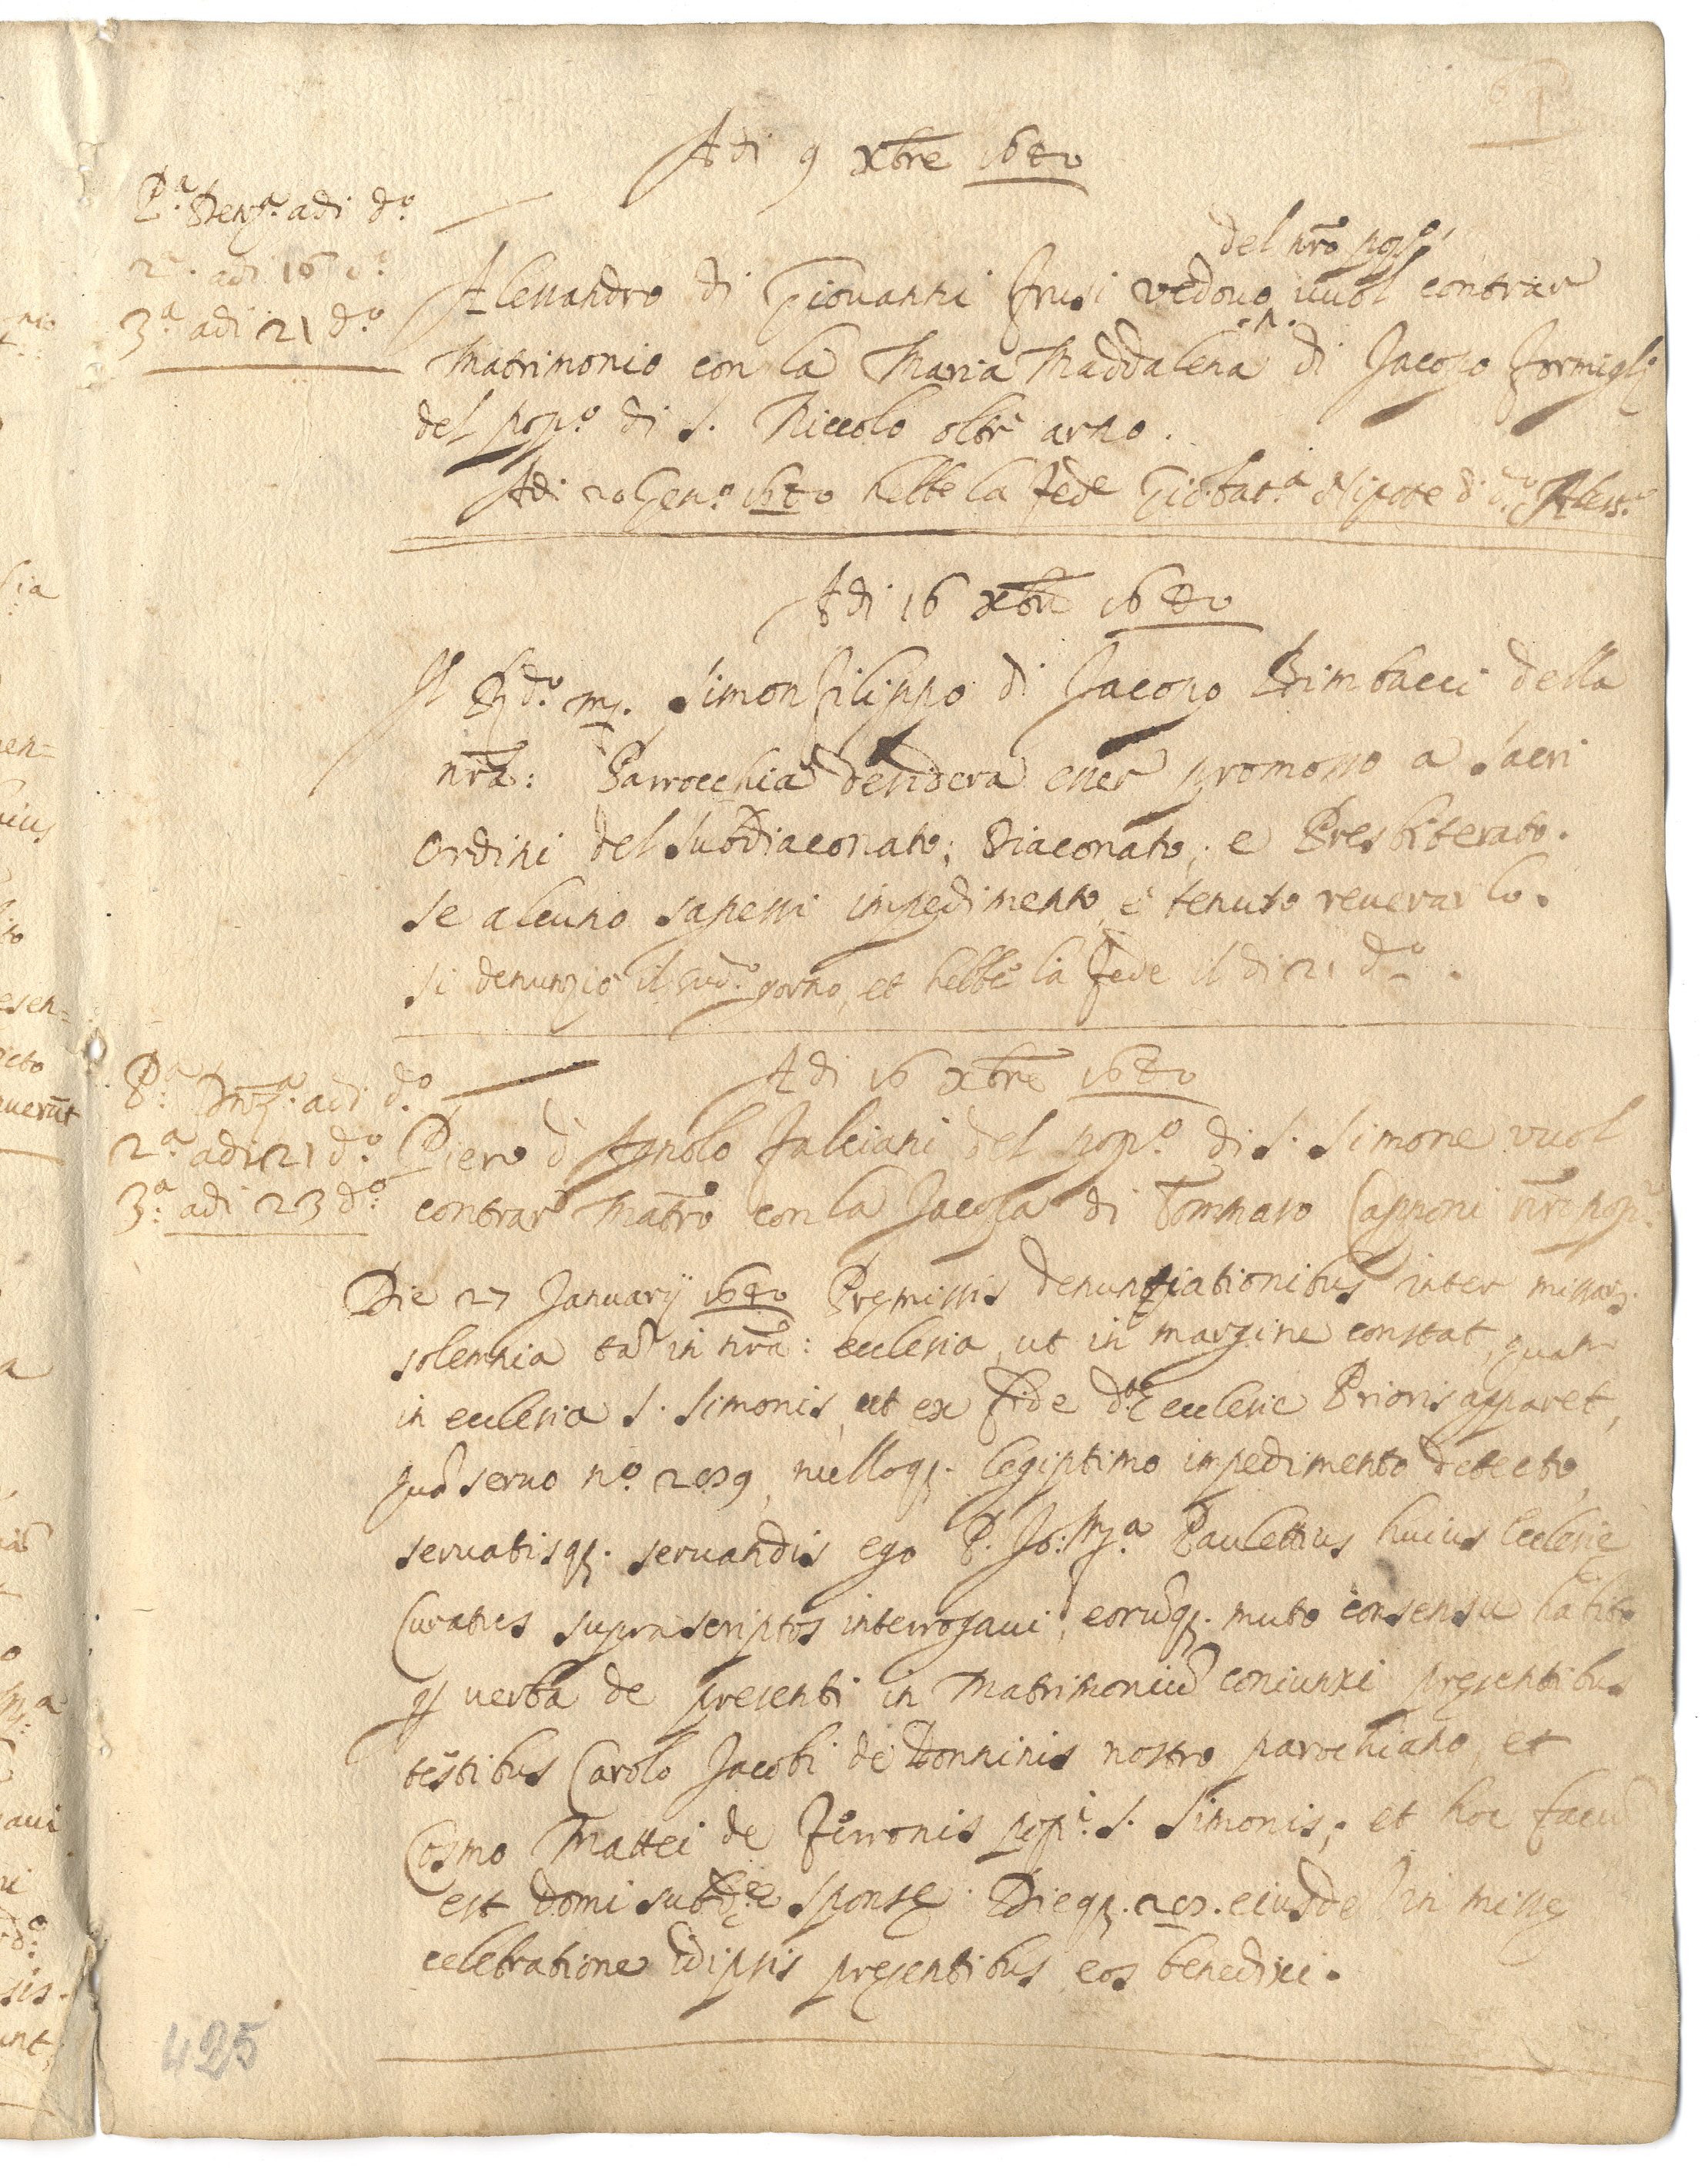 Adi 9 Xbre 1680
Pa. Denza. adi do.
2a. adi 16 do.
3a adi 21 do
del nro popo.
Alessandro di Giovanni Frusi vedovo vuol contrar
Matrimonio con la Maria Maddalena di Jacopo Formigli
del popo. di S. Niccolo oltr' arno.
Adi 20 Geno. 1680 hebbe la fede Gio:bata. Nipote di do. Alesso.
Adi 16 Xbre 1680
Il Rdo. mr. Simon Filippo di Jacopo Bimbacci della
nra: Parrocchia desidera esser promosso a sacri
Ordini del subdiaconato; Diaconato; e Presbiterato.
se alcuno sapessi impedimento, è tenuto revelarlo.
si denunziò il sudo. giorno, et hebbe la fede il di 21 do.
Adi 16 Xbre 1680
Pa. Dnza. adi do.
2a adi 21 do.
3a. adi 23 do.
Piero d' Agnolo Falciani del popo. di S. Simone vuol
contrar Matro con la Jacopa di Tommaso Capponi nro popo.
Die 27 Januarij 1680 Premissis denuntiationibus inter missarum
solemnia ta in nra: ecclesia, ut in margine constat, quam
in ecclesia S. Simonis, ut ex fide de ecclesie Prioris apparet,
qua servo no. 209, nulloq. legiptimo impedimento detecto,
servatisq. servandis ego P. Jo: Ma. Paulettus huius Ecclesie
Curatus suprascriptos interrogavi, eoruq. muto consensu habito
p verba de presenti in Matrimoniu coniunxi presentibus
testibus Carolo Jacobi de Donninis nostro parochiano, et
Cosmo Mattei de Ferronis popi. S. Simonis; et hoc factu
est domi subde sponse. Dieq. 28. eiusde in misse
celebratione idipsis presentibus eos benedixi.
425